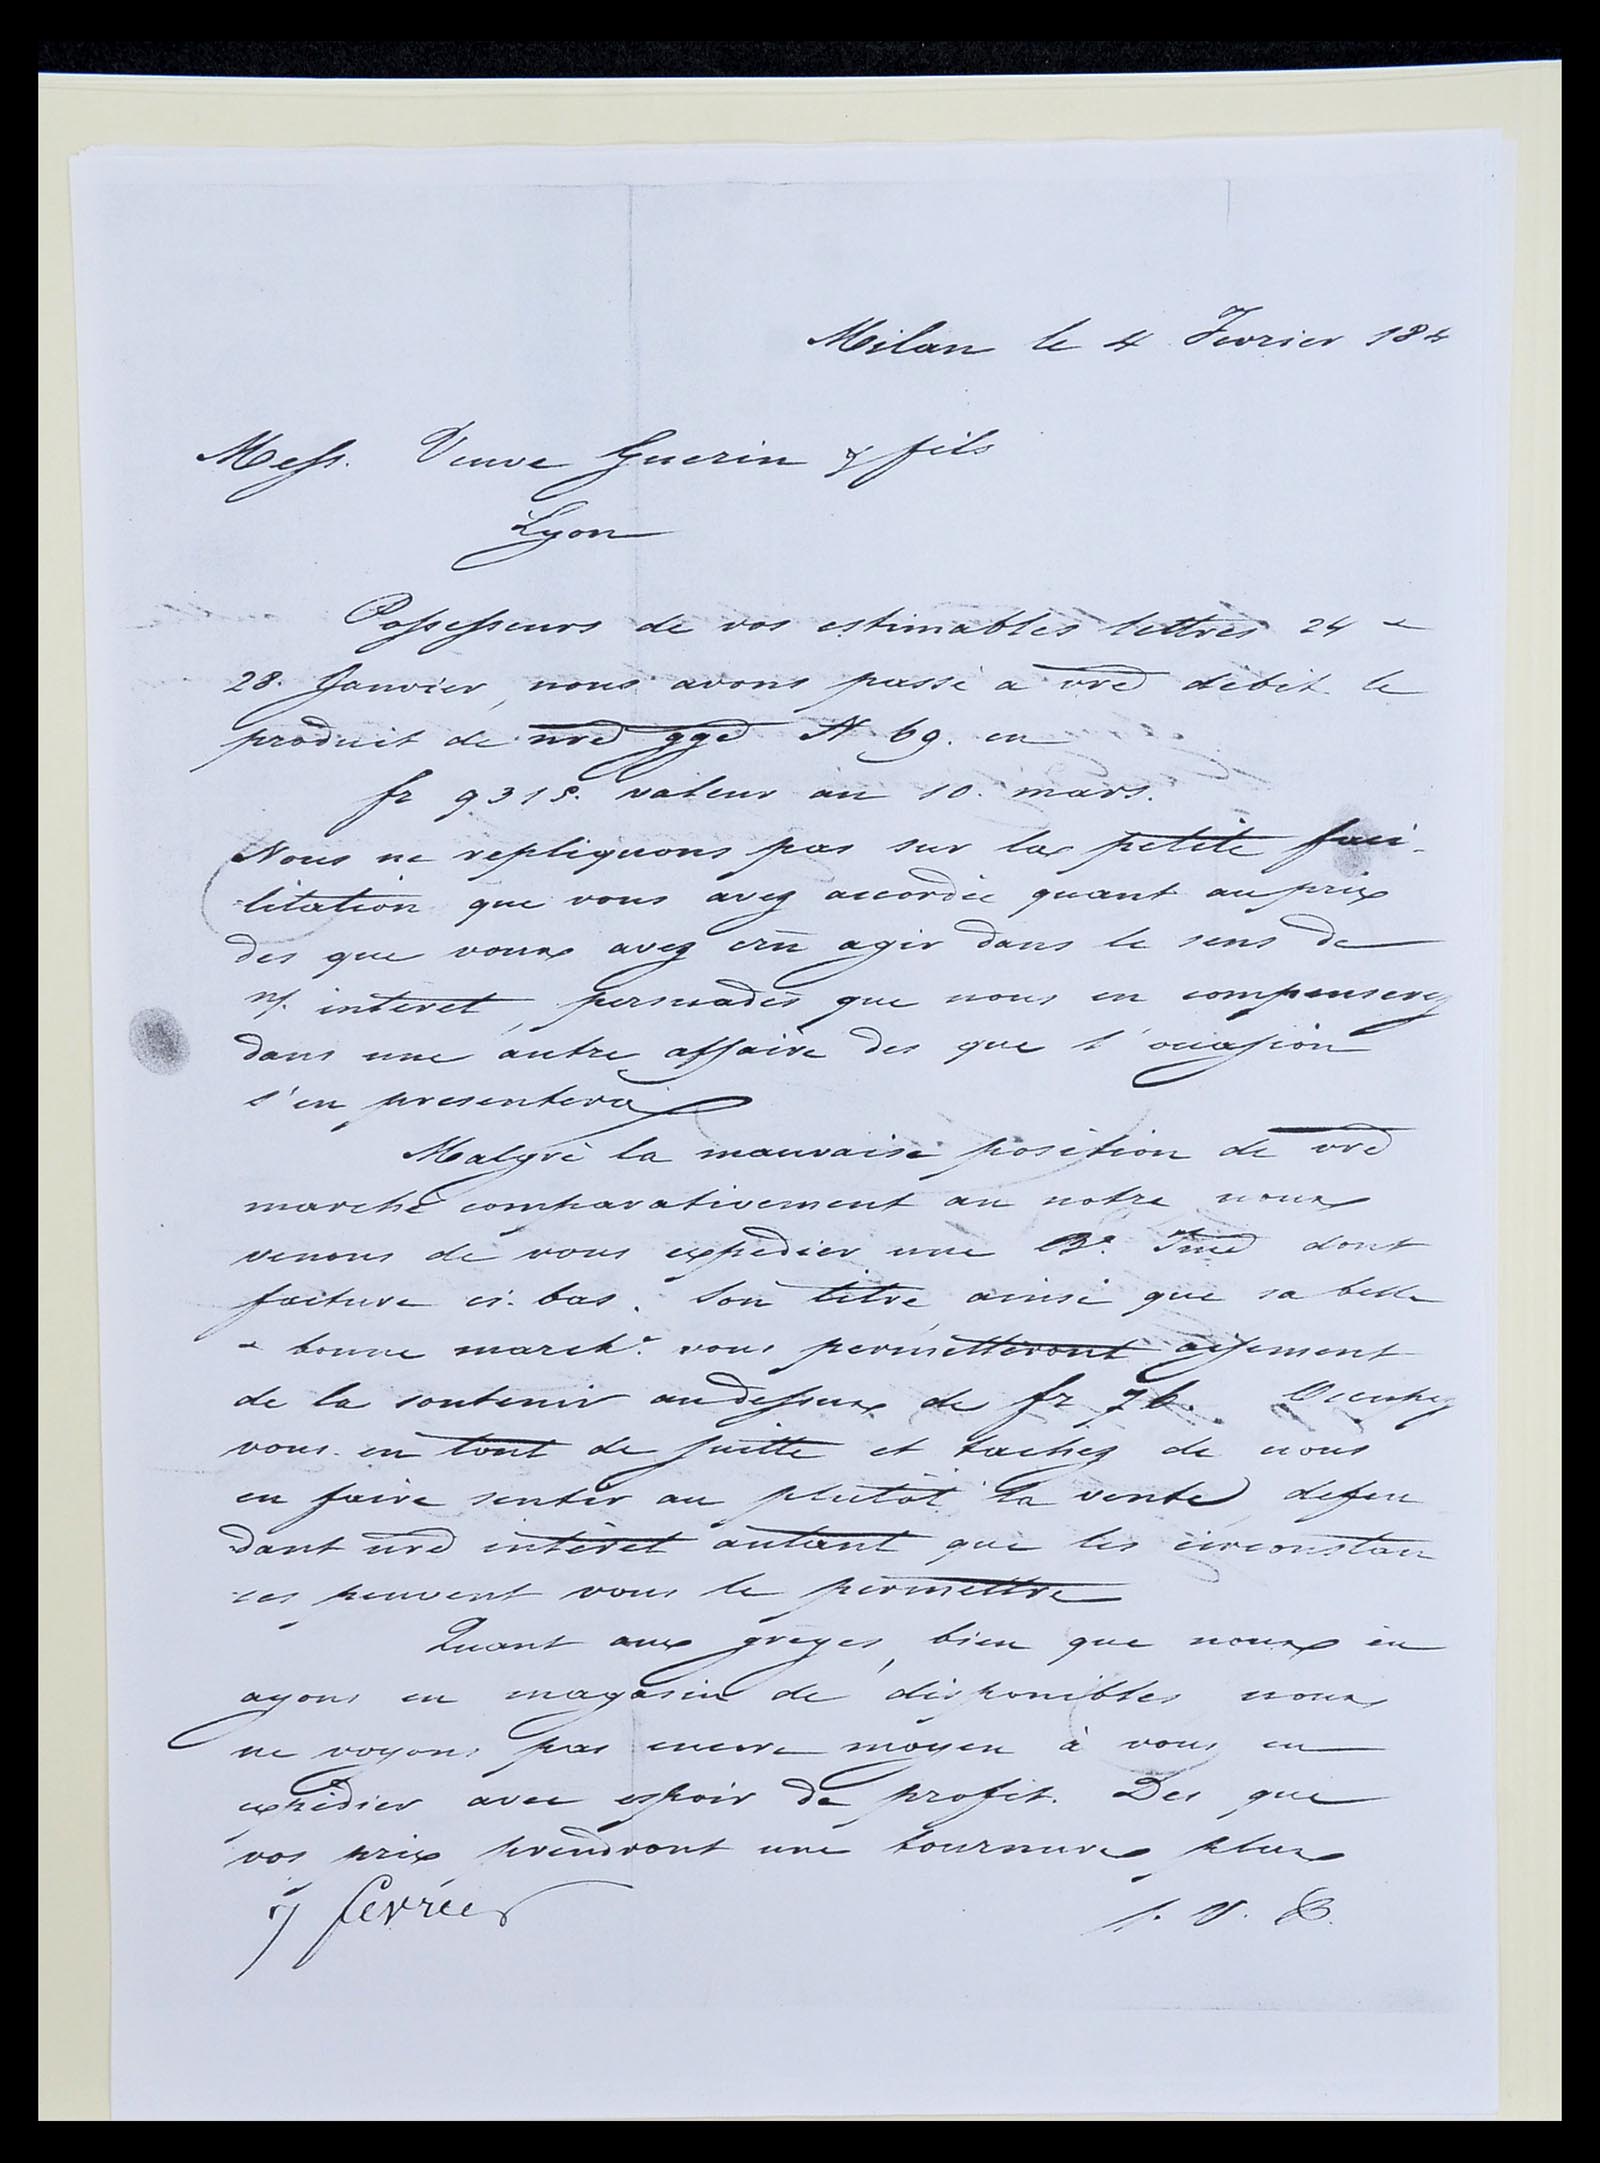 Milan le 4 Fevrier 184
Mess. Veuve Guerin & fils
Lyon
Possesseurs de vos estimables lettres 24 &
28. Janvier, nous avons passé a vre debit le
produit de nre gge N 69. en
fr 9315. valeur au 10. mars.
Nous ne repliquons pas sur la petite faci-
litation que vous avez accordée quant au prix
des que vous avez crû agir dans le sens de
n/. interet, persuadés que nous en compenserez
dans une autre affaire des que l'occasion
s'en presentera
Malgré la mauvaise position de vre
marché comparativement au notre nous
venons de vous expedier une Be. dont
facture ci-bas. Son titre, ainsi que sa belle
& bonne march.e vous permetteront aisement
de la soutenir audessus de fr 76. Occupez
vous en tout de suitte et tachez de nous
en faire sentir au plutôt la vente, defen
dant nre intéret autant que les circonstan
ces peuvent vous le permettre
Quant aux greges, bien que nous en
ayons en magasin de disponibles nous
ne voyons pas encore moyen à vous en
expédier avec espoir de profit. Des que
vos prix prendront une tournure plus
7 fevrier